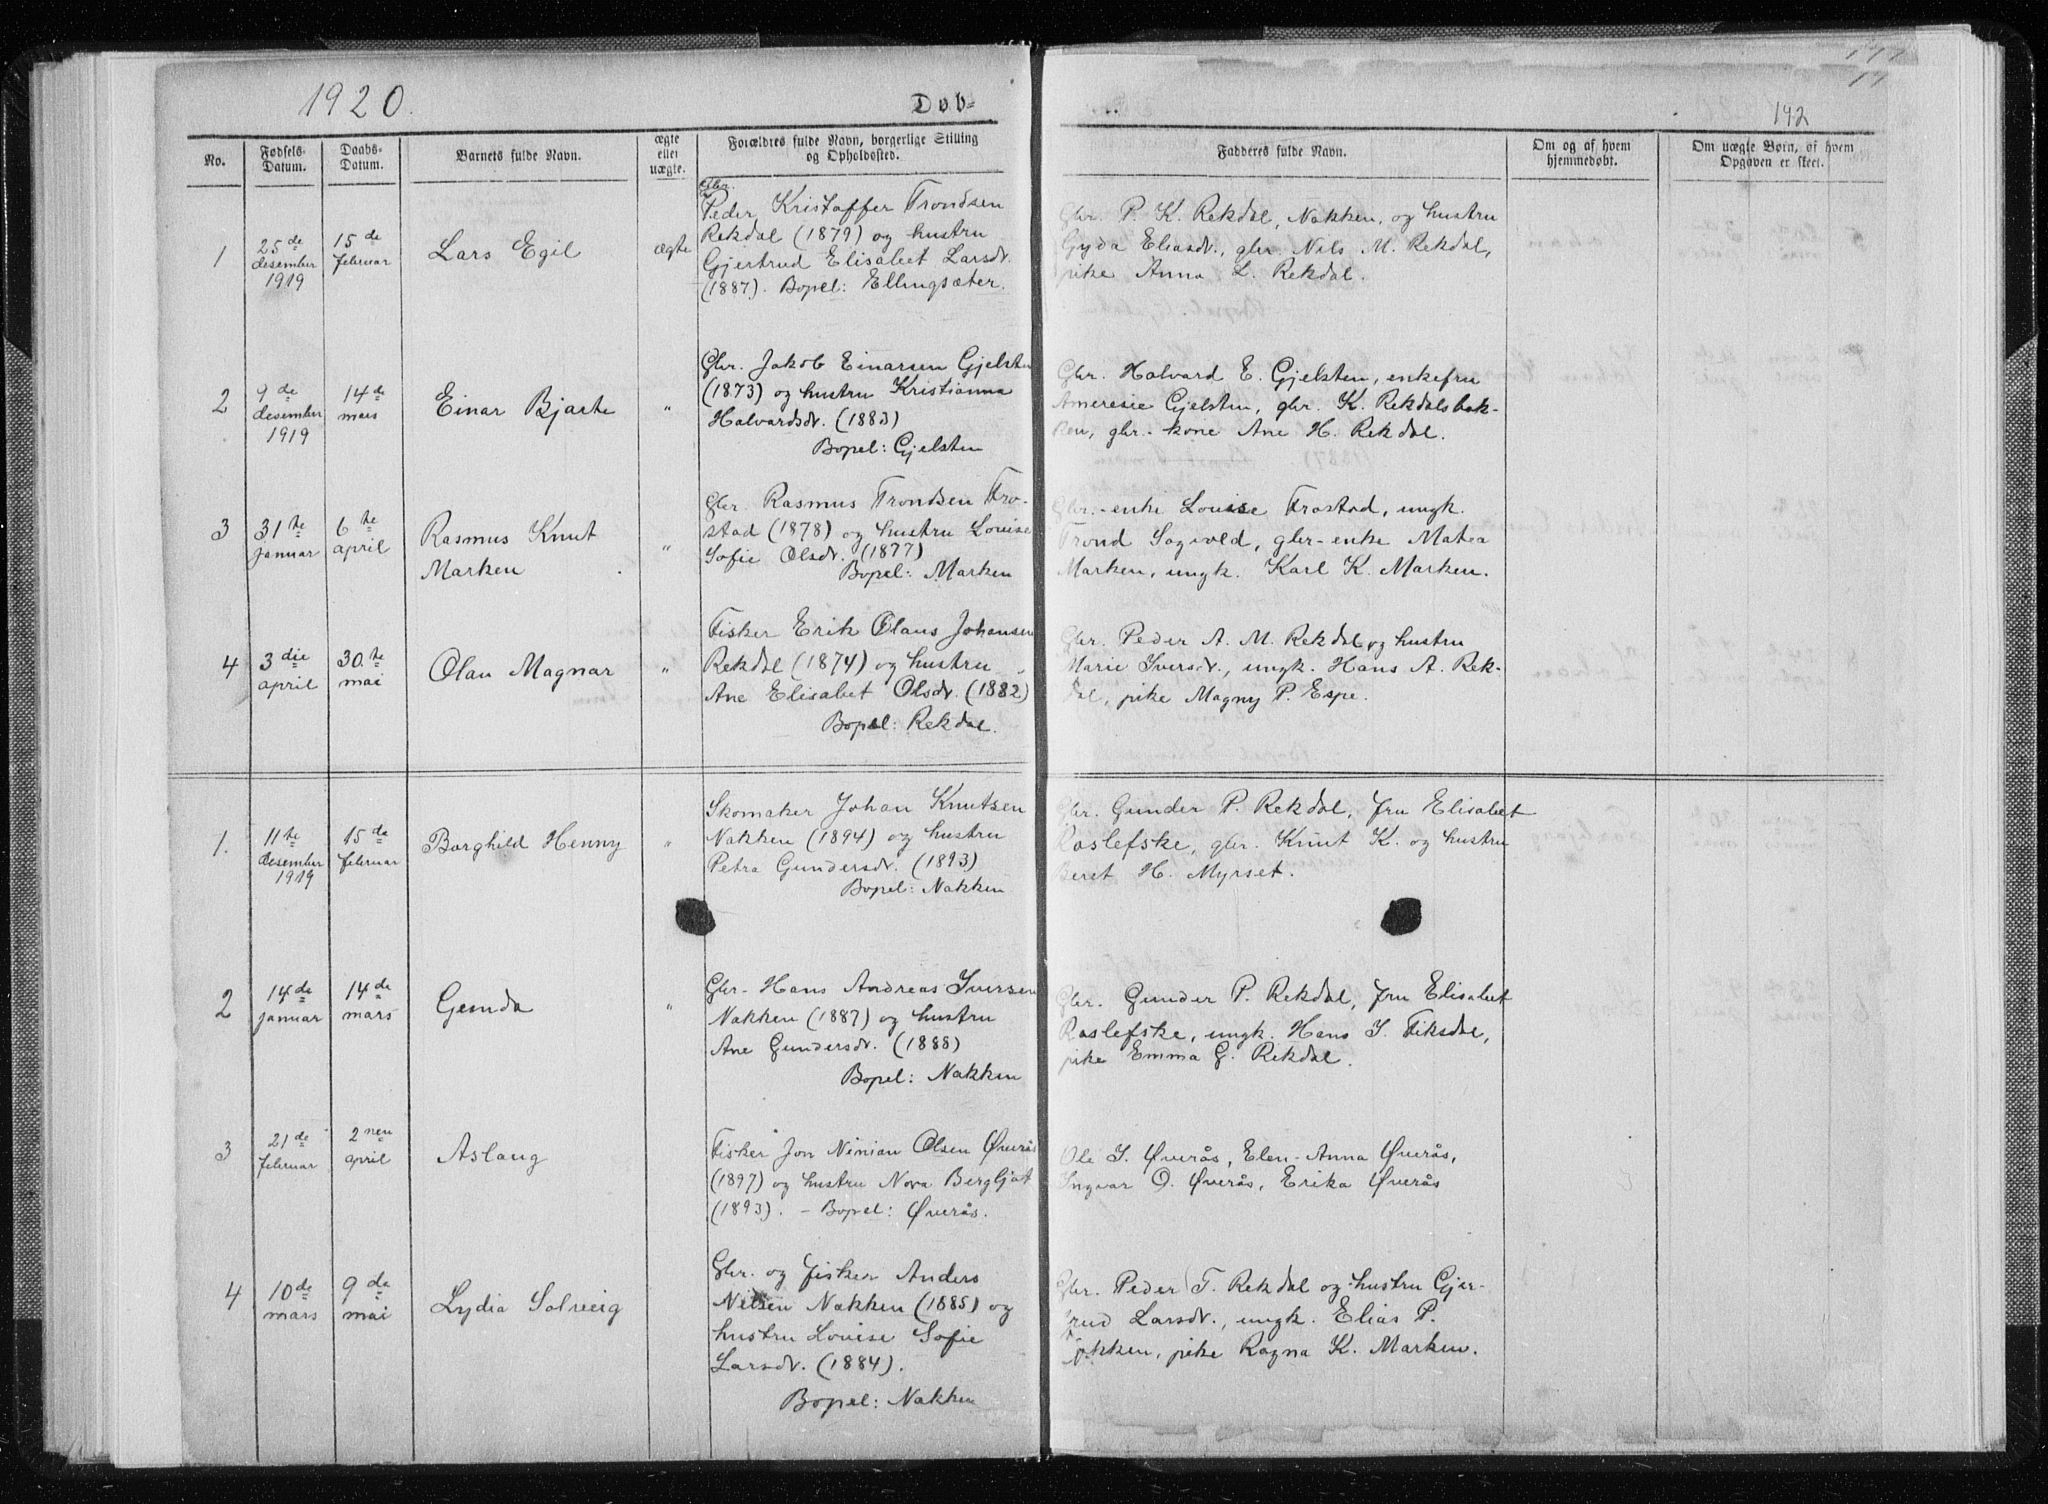 1920.
Døb=
142
No.
Fødsels-
Datum.
Daabs-
Datum.
Barnets fulde Navn.
ægte
eller
uægte.
Forældres fulde Navn, borgerlige Stilling
og Opholdssted.
Fadderes fulde Navn.
Om og af hvem
hjemmedøbt.
Om uægte Børn, af hvem
Opgaven er skeet.
1
25de
desember
1919
15de
februar
Lars Egil
ægte
Gbr.
Peder Kristoffer Trondsen
Rekdal (1879) og hustru
Gjertrud Elisabet Larsdr.
(1887). Bopel: Ellingsæter.
Gbr. P. K. Rekdal, Nakken, og hustru
Gyda Eliasdr., gbr. Nils M. Rekdal,
pike Anna L. Rekdal.
2
9de
desember
1919
14de
mars
Einar Bjarte
"
Gbr. Jakob Einarsen Gjelsten
(1873) og hustru Kristianna
Halvardsdr. (1883)
Bopel: Gjelsten
Gbr. Halvard E. Gjelsten, enkefru
Ameresie Gjelsten, gbr. K. Rekdalsbak-
ken, gbr.-kone Ane H. Rekdal.
3
31te
januar
6te
april
Rasmus Knut
Marken
"
Gbr. Rasmus Trondsen Fro-
stad (1878) og hustru Louise
Sofie Olsdr. (1877)
Bopel: Marken
Gbr.-enke Louise Frostad, ungk.
Trond Sogvold, gbr-enke Matea
Marken, ungk. Karl K. Marken.
4
3die
april
30.te
mai
Olau Magnar
"
Fisker Erik Olaus Johansen
Rekdal (1874) og hustru
Ane Elisabet Olsdr. (1882)
Bopel: Rekdal.
Gbr. Peder A. M. Rekdal og hustru
Marie Iversdr., ungk. Hans A. Rek-
dal, pike Magny P. Espe.
1.
11te
desember
1919
15de
februar
Borghild Henny
"
Skomaker Johan Knutsen
Nakken (1894) og hustru
Petra Gundersdr. (1893)
Bopel: Nakken
Gbr. Gunder P. Rekdal, fru Elisabet
Roslefske, gbr. Knut K. og hustru
Beret H. Myrset.
2
14de
januar
14de
mars
Gerda
"
Gbr. Hans Andreas Iversen
Nakken (1887) og hustru
Ane Gundersdr. (1888)
Bopel: Nakken
Gbr. Gunder P. Rekdal, fru Elisabet
Roslefske, ungk. Hans I. Fiksdal,
pike Emma G. Rekdal.
3
21de
februar
2nen
april
Aslaug
Fisker Jon Ninian Olsen Øverås
(1897) og hustru Nora Bergljot
(1893). - Bopel: Øverås.
Ole I. Øverås, Elen-Anna Øverås,
Ingvar O. Øverås, Erika Øverås
4
10de
mars
9de
mai
Lydia Solveig
Gbr. og fisker Anders
Nilsen Nakken (1885) og
hustru Louise Sofie
Larsdr. (1884).
Bopel: Nakken
Gbr. Peder T. Rekdal og hustru Gjer-
trud Larsdr., ungk. Elias P.
Nakken, pike Ragna K. Marken.